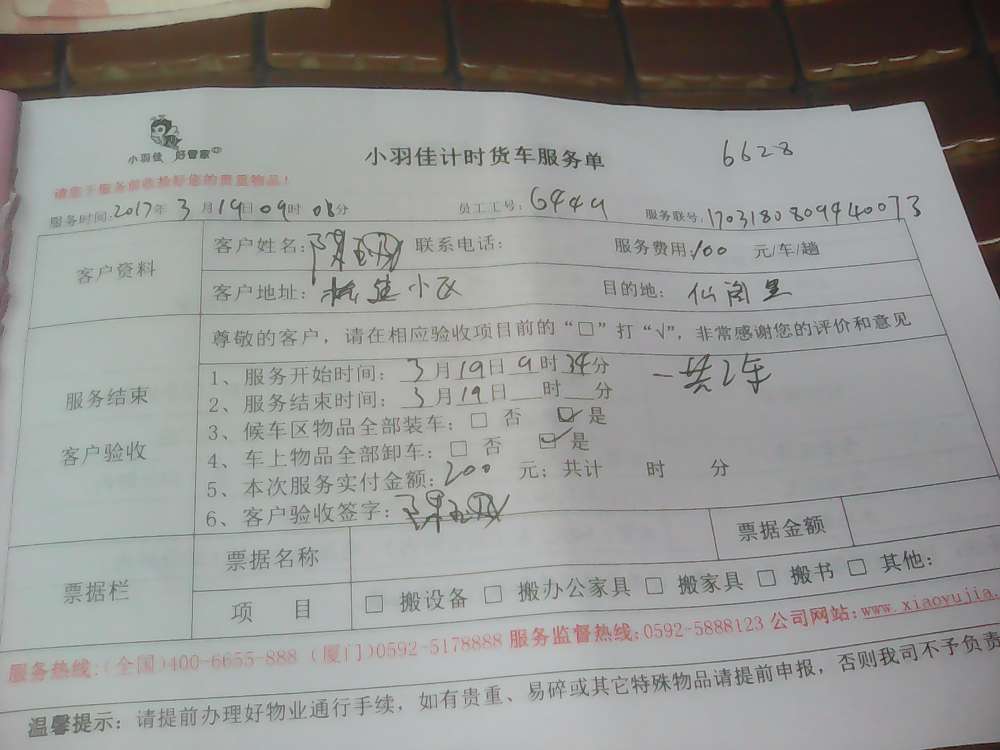 小羽佳 好管家
小羽佳计时货车服务单
6628
请您于服务前收捡好您的贵重物品！
服务时间:2017年3月19日09时08分 员工工号:6449 服务联号:170318080940073
客户资料
客户姓名: 联系电话: 服务费用:100 元/车/趟
客户地址: 小区 目的地: 仙阁里
服务结束
客户验收
尊敬的客户，请在相应验收项目前的“□”打“√”，非常感谢您的评价和意见
1、服务开始时间：3月19日9时34分
一共2车
2、服务结束时间：3月19日___时___分
3、候车区物品全部装车：□ 否 ☑ 是
4、车上物品全部卸车：□ 否 ☑ 是
5、本次服务实付金额：200 元；共计 时 分
6、客户验收签字：
票据栏
票据名称 票据金额
项 目 □ 搬设备 □ 搬办公家具 □ 搬家具 □ 搬书 □ 其他:
服务热线:(全国)400-6655-888 (厦门)0592-5178888 服务监督热线:0592-5888123 公司网站:www.xiaoyujia.
温馨提示：请提前办理好物业通行手续，如有贵重、易碎或其它特殊物品请提前申报，否则我司不予负责